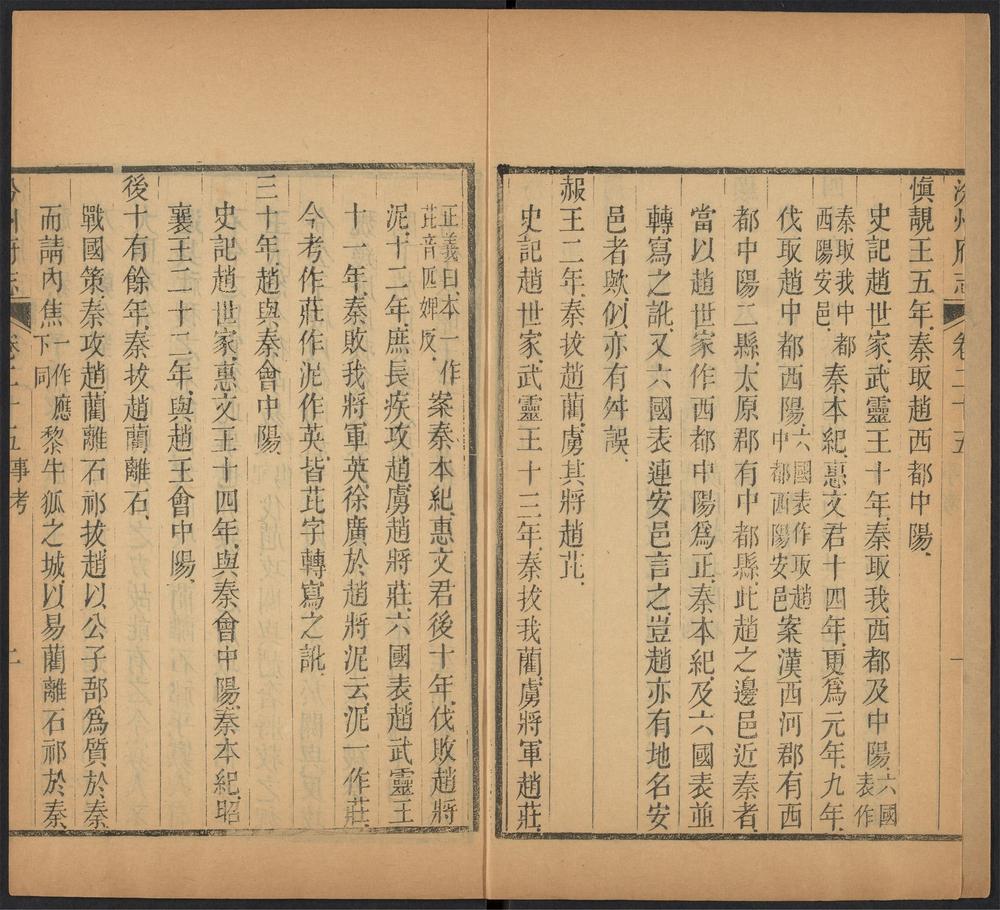 汾州府志 卷二十五 一
慎靚王五年、秦取趙西都中陽、
史記趙世家、武靈王十年、秦取我西都及中陽、六國表作
秦取我中都西陽安邑、秦本紀、惠文君十四年、更爲元年、九年、
伐取趙中都西陽、六國表作取趙中都西陽安邑案漢西河郡有西
都中陽二縣、太原郡有中都縣、此趙之邊邑近秦者、
當以趙世家作西都中陽爲正、秦本紀、及六國表並
轉寫之訛、又六國表連安邑言之、豈趙亦有地名安
邑者歟、似亦有舛誤、
赧王二年、秦拔趙藺、虜其將趙芘、
史記趙世家、武靈王十三年、秦拔我藺、虜將軍趙莊、
正義曰、本一作芘音匹婢反、案秦本紀、惠文君後十年、伐敗趙將
泥、十二年、庶長疾攻趙、虜趙將莊、六國表、趙武靈王
十一年、秦敗我將軍英、徐廣於趙將泥云、泥一作莊、
今考作莊作泥作英、皆芘字轉寫之訛、
三十年、趙與秦會中陽、
史記趙世家、惠文王十四年、與秦會中陽、秦本紀、昭
襄王二十二年、與趙王會中陽、
後十有餘年、秦拔趙藺離石、
戰國策、秦攻趙藺離石祁拔、趙以公子郚爲質於秦、
而請內焦一作應下同黎牛狐之城、以易藺離石祁於秦、
汾州府志 卷二十五 事考 二